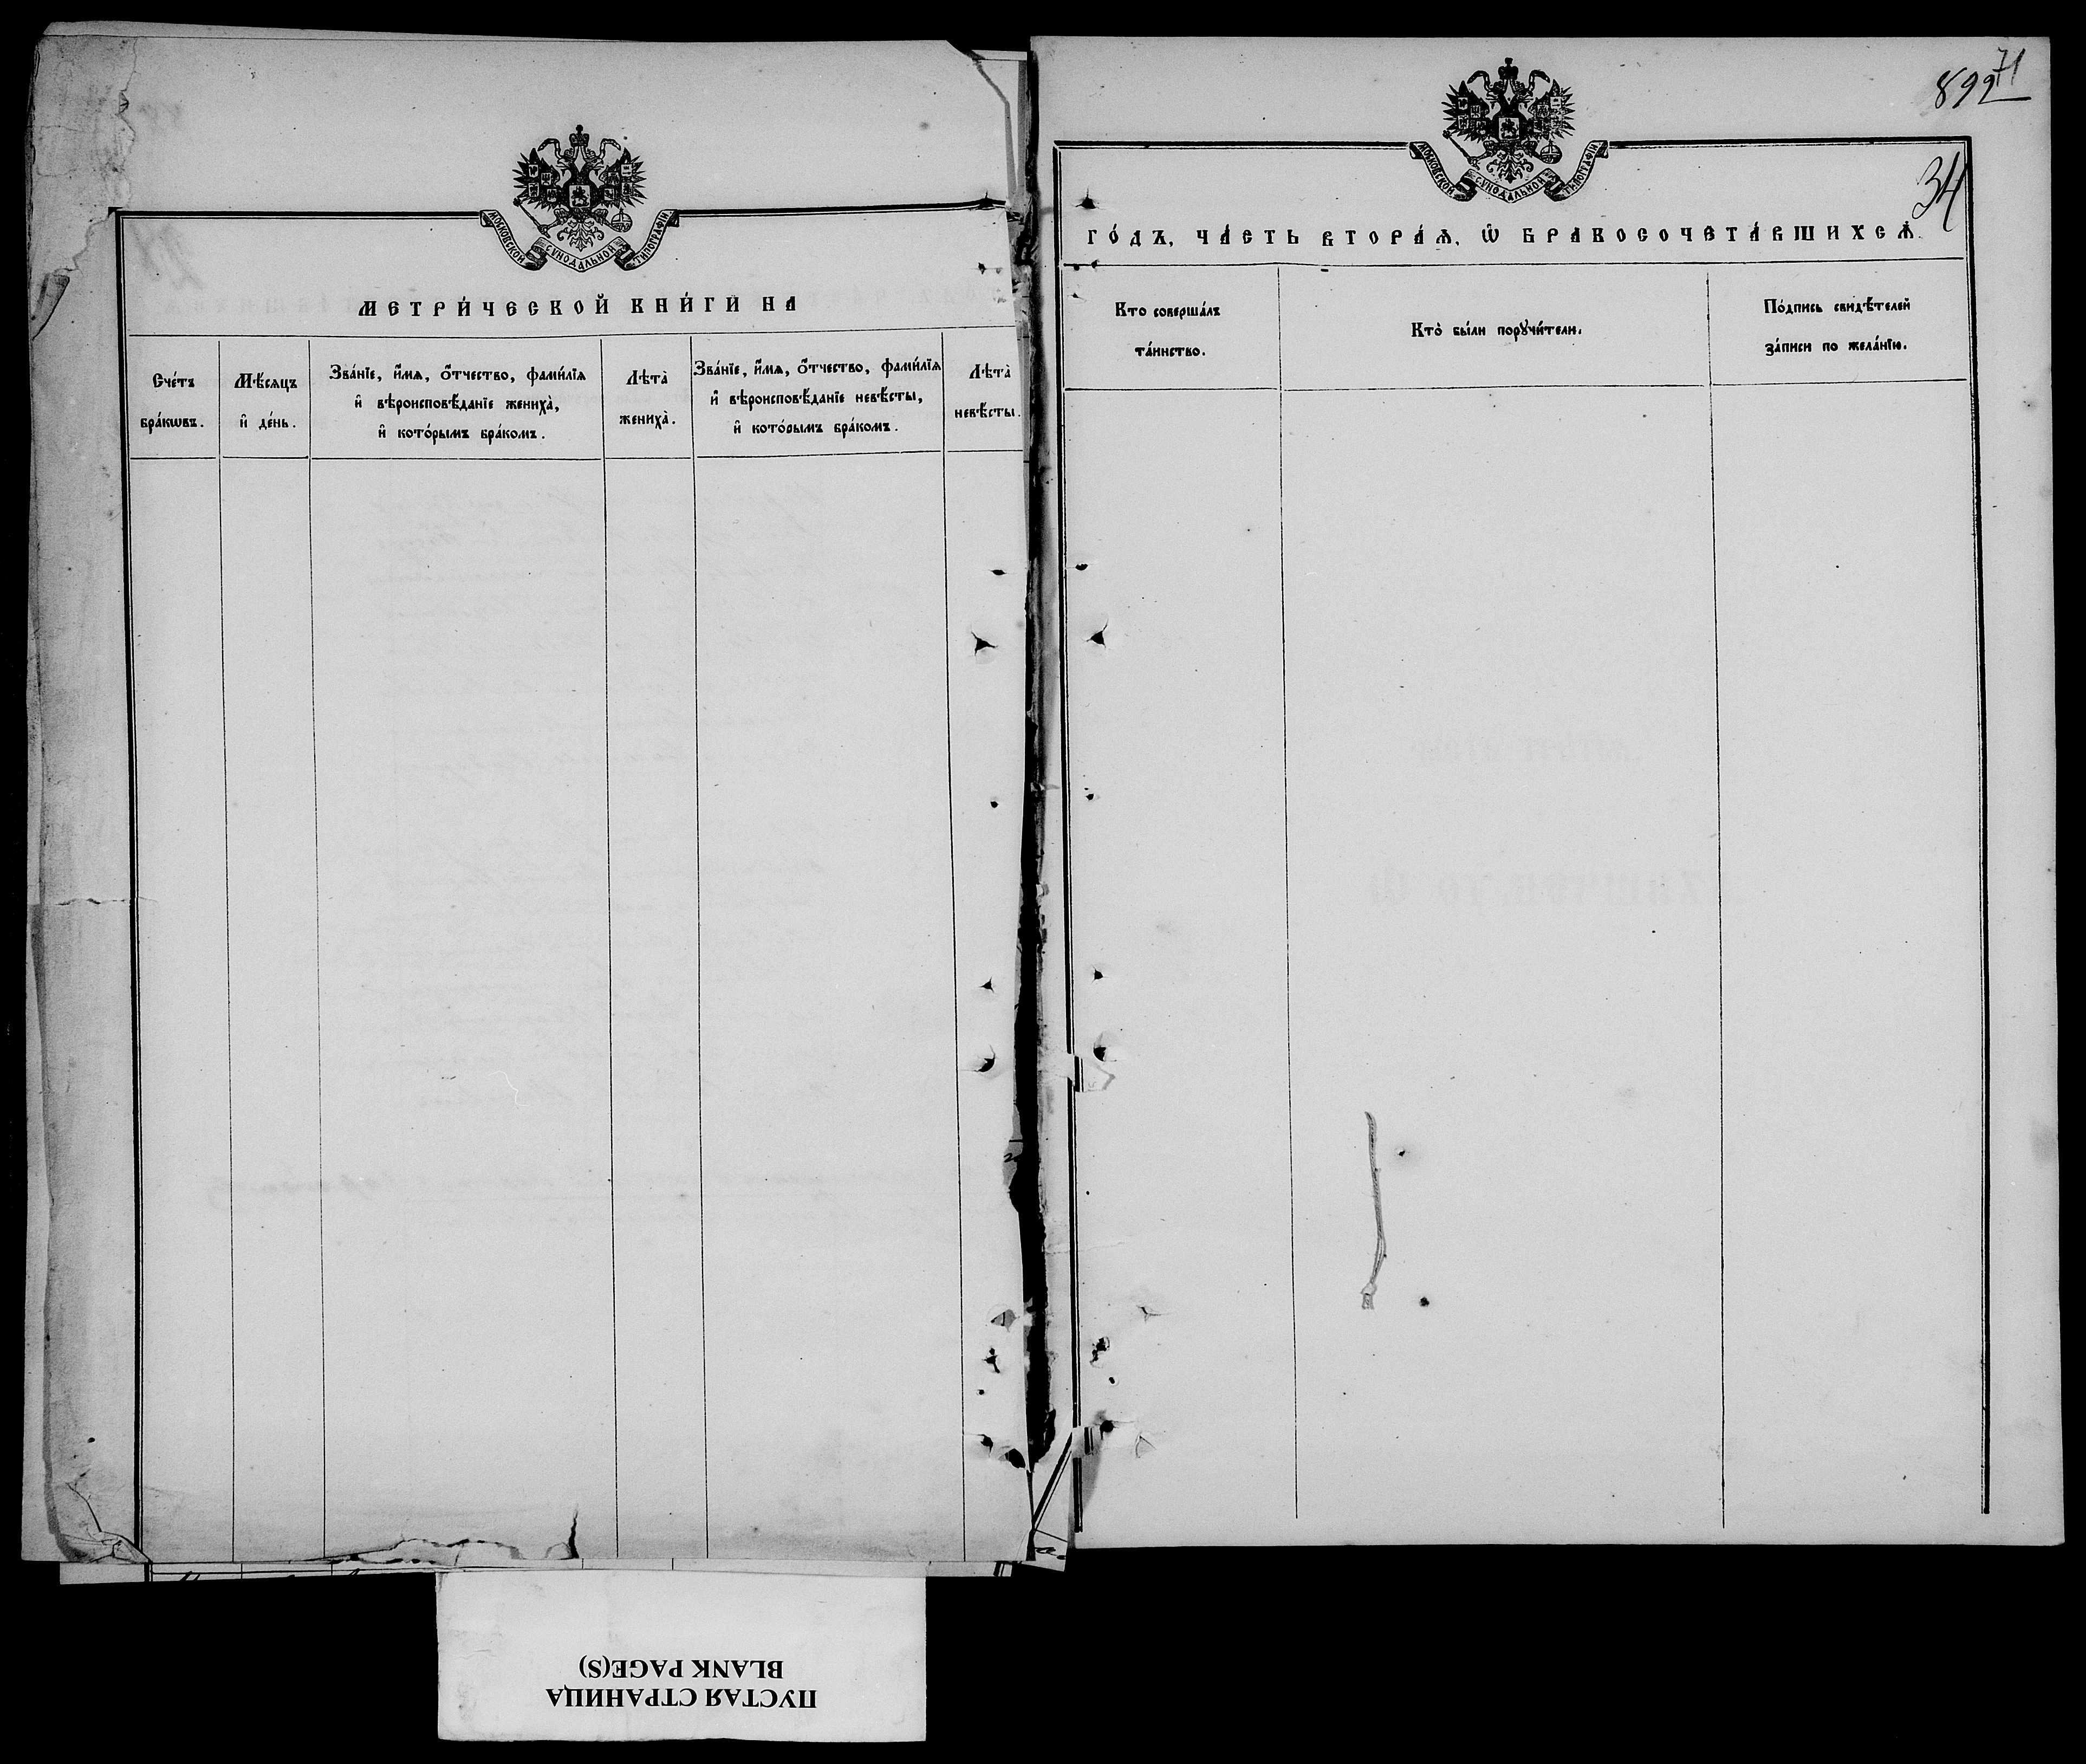 МОСКОВСКОЙ СѴНОДАЛЬНОЙ ТИПОГРАФІИ
МЕТРИ́ЧЕСКОЙ КНИ́ГИ НА
Сче́тъ
бра́кωвъ.
Мѣ́сѧцъ
и҆ де́нь.
Зва́нїе, и҆́мѧ, ѻ҆́тчество, фами́лїѧ
и҆ вѣроисповѣ́данїе женихà,
и҆ кото́рымъ бра́комъ.
Лѣта̀
женихà.
Зва́нїе, и҆́мѧ, ѻ҆́тчество, фами́лїѧ
и҆ вѣроисповѣ́данїе невѣ́сты,
и҆ кото́рымъ бра́комъ.
Лѣта̀
невѣ́сты.
892 71
34
МОСКОВСКОЙ СѴНОДАЛЬНОЙ ТИПОГРАФІИ
ГО́ДЪ, ЧА́СТЬ ВТОРА́Ѧ, Ѽ БРАКОСОЧЕТА́ВШИХСѦ.
Кто соверша́лъ
та́инство.
Кто̀ бы́ли порꙋчи́тели.
По́дпись свидѣ́телей
за́писи по жела́нїю.
ПУСТАЯ СТРАНИЦА
BLANK PAGE(S)